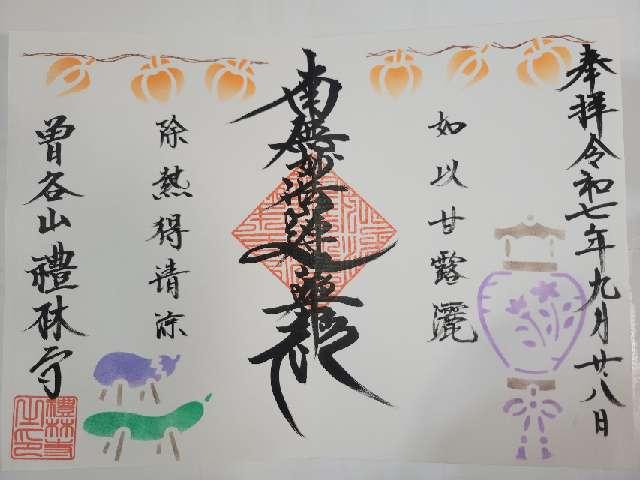 奉拝令和七年九月廿八日
如以甘露灑
南無妙法蓮華経
除熱得清涼
曽谷山禮林寺
禮林寺之印